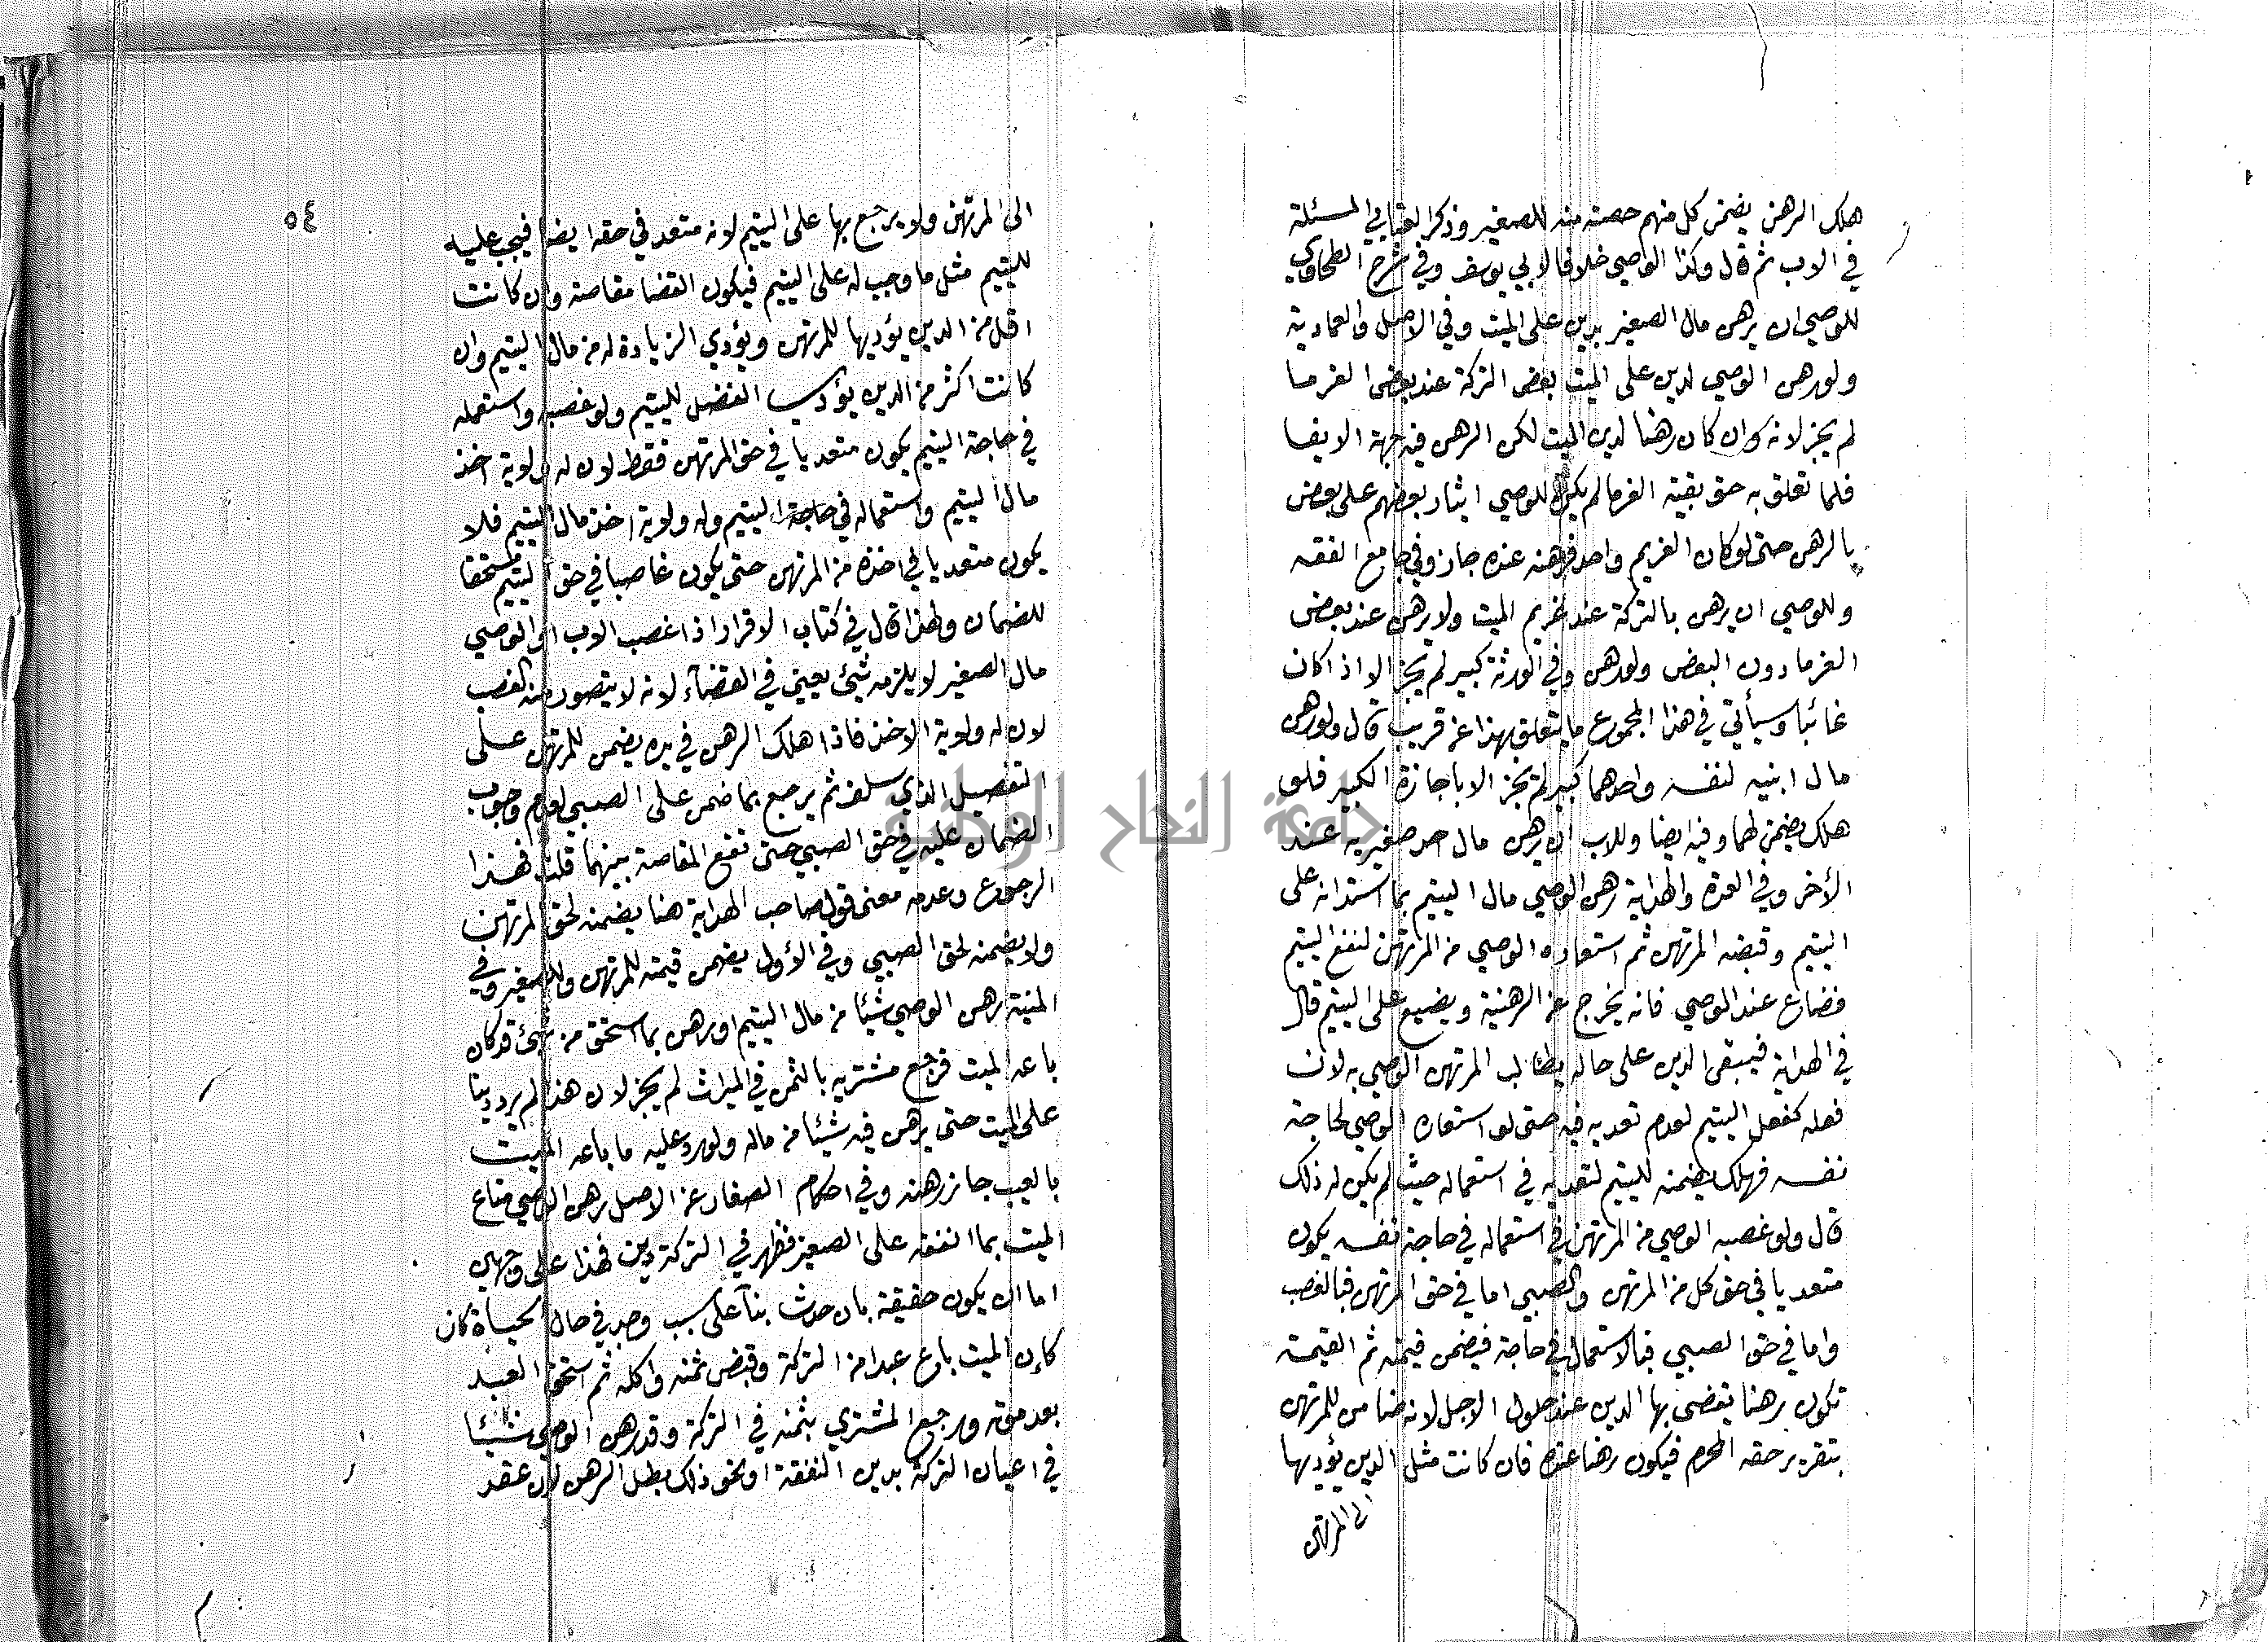 هلك الرهن يضمن كل منهم حصته منه للصغير وذكر العتابي المسئلة
في الاب ثم قال وكذا الوصي خلافا لابي يوسف وفي شرح الطحاوي
للوصي ان يرهن مال الصغير بدين على الميت وفي الاصل والعمادية
ولو رهن الوصي لدين على الميت بعض التركة عند بعض الغرما
لم يجز لانه وان كان رهنا لدين الميت لكن الرهن فيه جهة الايفا
فلما تعلق به حق بقية الغرما لم يكن للوصي ايثار بعضهم على بعض
بالرهن حتى لو كان الغريم واحد فرهنه عنده جاز وفي جامع الفقه
وللوصي ان يرهن بالتركة عند غريم الميت ولا يرهن عند بعض
الغرما دون البعض ولو رهن وفي الورثة كبير لم يجز الا اذا كان
غائبا وسيأتي في هذا المجموع ما يتعلق بهذا عن قريب قال ولو رهن
مال ابنيه لنفسه واحدهما كبير لم يجز الا باجازة الكبير فلو
هلك يضمن لهما وفيه ايضا وللاب ان يرهن مال احد صغيريه عند
الأخر وفي العدة والهداية رهن الوصي مال اليتيم بما استدانه على
اليتيم وقبضه المرتهن ثم استعاره الوصي من المرتهن لنفع اليتيم
فضاع عند الوصي فانه يخرج عن الرهنية ويضيع على اليتيم قال
في الهداية فيبقى الدين على حاله يطالب المرتهن الوصي به لان
فعله كفعل اليتيم لعدم تعديه فيه حتى لو استعاره الوصي لحاجة
نفسه فهلك يضمنه لليتيم لتعديه في استعماله حيث لم يكن له ذلك
قال ولو غصبه الوصي من المرتهن في استعماله في حاجة نفسه يكون
متعديا في حق كل من المرتهن والصبي اما في حق المرتهن فبالغصب
واما في حق الصبي فبالاستعمال في حاجة فيضمن قيمته ثم القيمة
تكون رهنا يقضى بها الدين عند حلول الاجل لانه ضامن للمرتهن
بتقرير حقه المحرم فيكون رهنا عنده فان كانت مثل الدين يؤديها
الى المرتهن
٥٤
الى المرتهن ولا يرجع بها على اليتيم لانه متعد في حقه ايضا فيجب عليه
لليتيم مثل ما وجب له على اليتيم فيكون القضا مقاصة وان كانت
اقل من الدين يؤديها للمرتهن ويؤدي الزيادة له من مال اليتيم وان
كانت اكثر من الدين يؤدي الفضل لليتيم ولو غصبه واستعمله
في حاجة اليتيم يكون متعديا في حق المرتهن فقط لان له ولاية اخذ
مال اليتيم واستعماله في حاجة اليتيم وله ولاية اخذ مال اليتيم فلا
يكون متعديا في اخذه من المرتهن حتى يكون غاصبا في حق اليتيم مستحقا
للضمان ولهذا قال في كتاب الاقرار اذا غصب الاب او الوصي
مال الصغير لا يلزمه شيئ يعني في القضاء لانه لا يتصور منه الغصب
لان له ولاية الاخذ فاذا هلك الرهن في يده يضمن للمرتهن على
التفصيل الذي سلف ثم يرجع بما ضمن على الصبي لعدم وجوب
الضمان عليه في حق الصبي حتى تقع المقاصة بينهما قلت فهذا
الرجوع وعدمه معنى قول صاحب الهداية هنا يضمنه لحق المرتهن
ولا يضمنه لحق الصبي وفي الأول يضمن قيمته للمرتهن وللصغير وفي
المنية رهن الوصي شيئا من مال اليتيم او رهن بما استحق من شيئ قد كان
باعه الميت فرجع مشتريه بالثمن في الميراث لم يجز لان هذا لم يرد دينا
على الميت حتى يرهن فيه شيئا من ماله ولو رد عليه ما باعه الميت
بالعيب جاز رهنه وفي احكام الصغار عن الاصل رهن الوصي متاع
الميت بما انفقه على الصغير فظهر في التركة دين فهذا على وجهين
اما ان يكون حقيقة بان حدث بنآ على سبب وجد في حال الحياة كان
كإن الميت باع عبدا من التركة وقبض ثمنه واكله ثم استحق العبد
بعد موته ورجع المشتري بثمنه في التركة وقد رهن الوصي شيئا
في اعيان التركة بدين النفقة او نحو ذلك بطل الرهن لان عقد
جامعة النجاح الوطنية